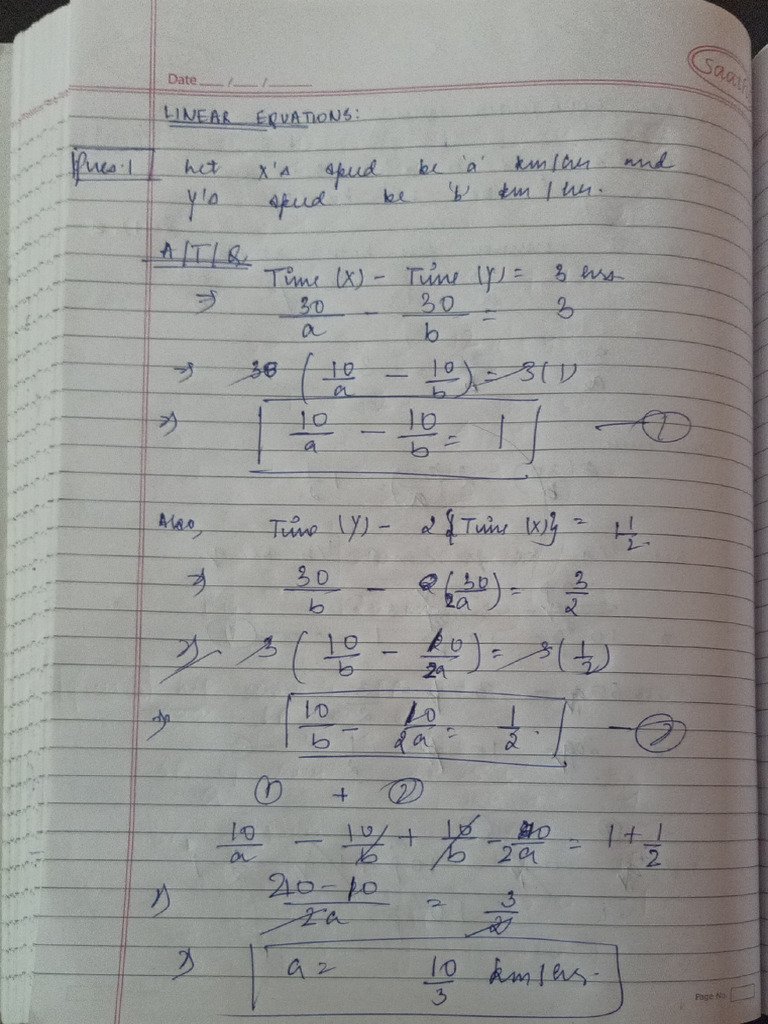 Date __/__/____
saar
LINEAR EQUATIONS:
Ques.1 Let X's speed be 'a' km/hrs and
Y's speed be 'b' km/hrs.
A/T/Q
Time (X) - Time (Y) = 3 hrs
⇒ 30/a - 30/b = 3
⇒ 3 (10/a - 10/b) = 3(1)
⇒ 10/a - 10/b = 1 — ①
Also, Time (Y) - 2{Time (X)} = 1 1/2
⇒ 30/b - (30/2a) = 3/2
⇒ 3 (10/b - 10/2a) = 3(1/2)
⇒ 10/b - 10/2a = 1/2. — ②
① + ②
10/a - 10/b + 10/b - 10/2a = 1 + 1/2
⇒ 20-10/2a = 3/2
⇒ a = 10/3 km/hrs.
Page No.